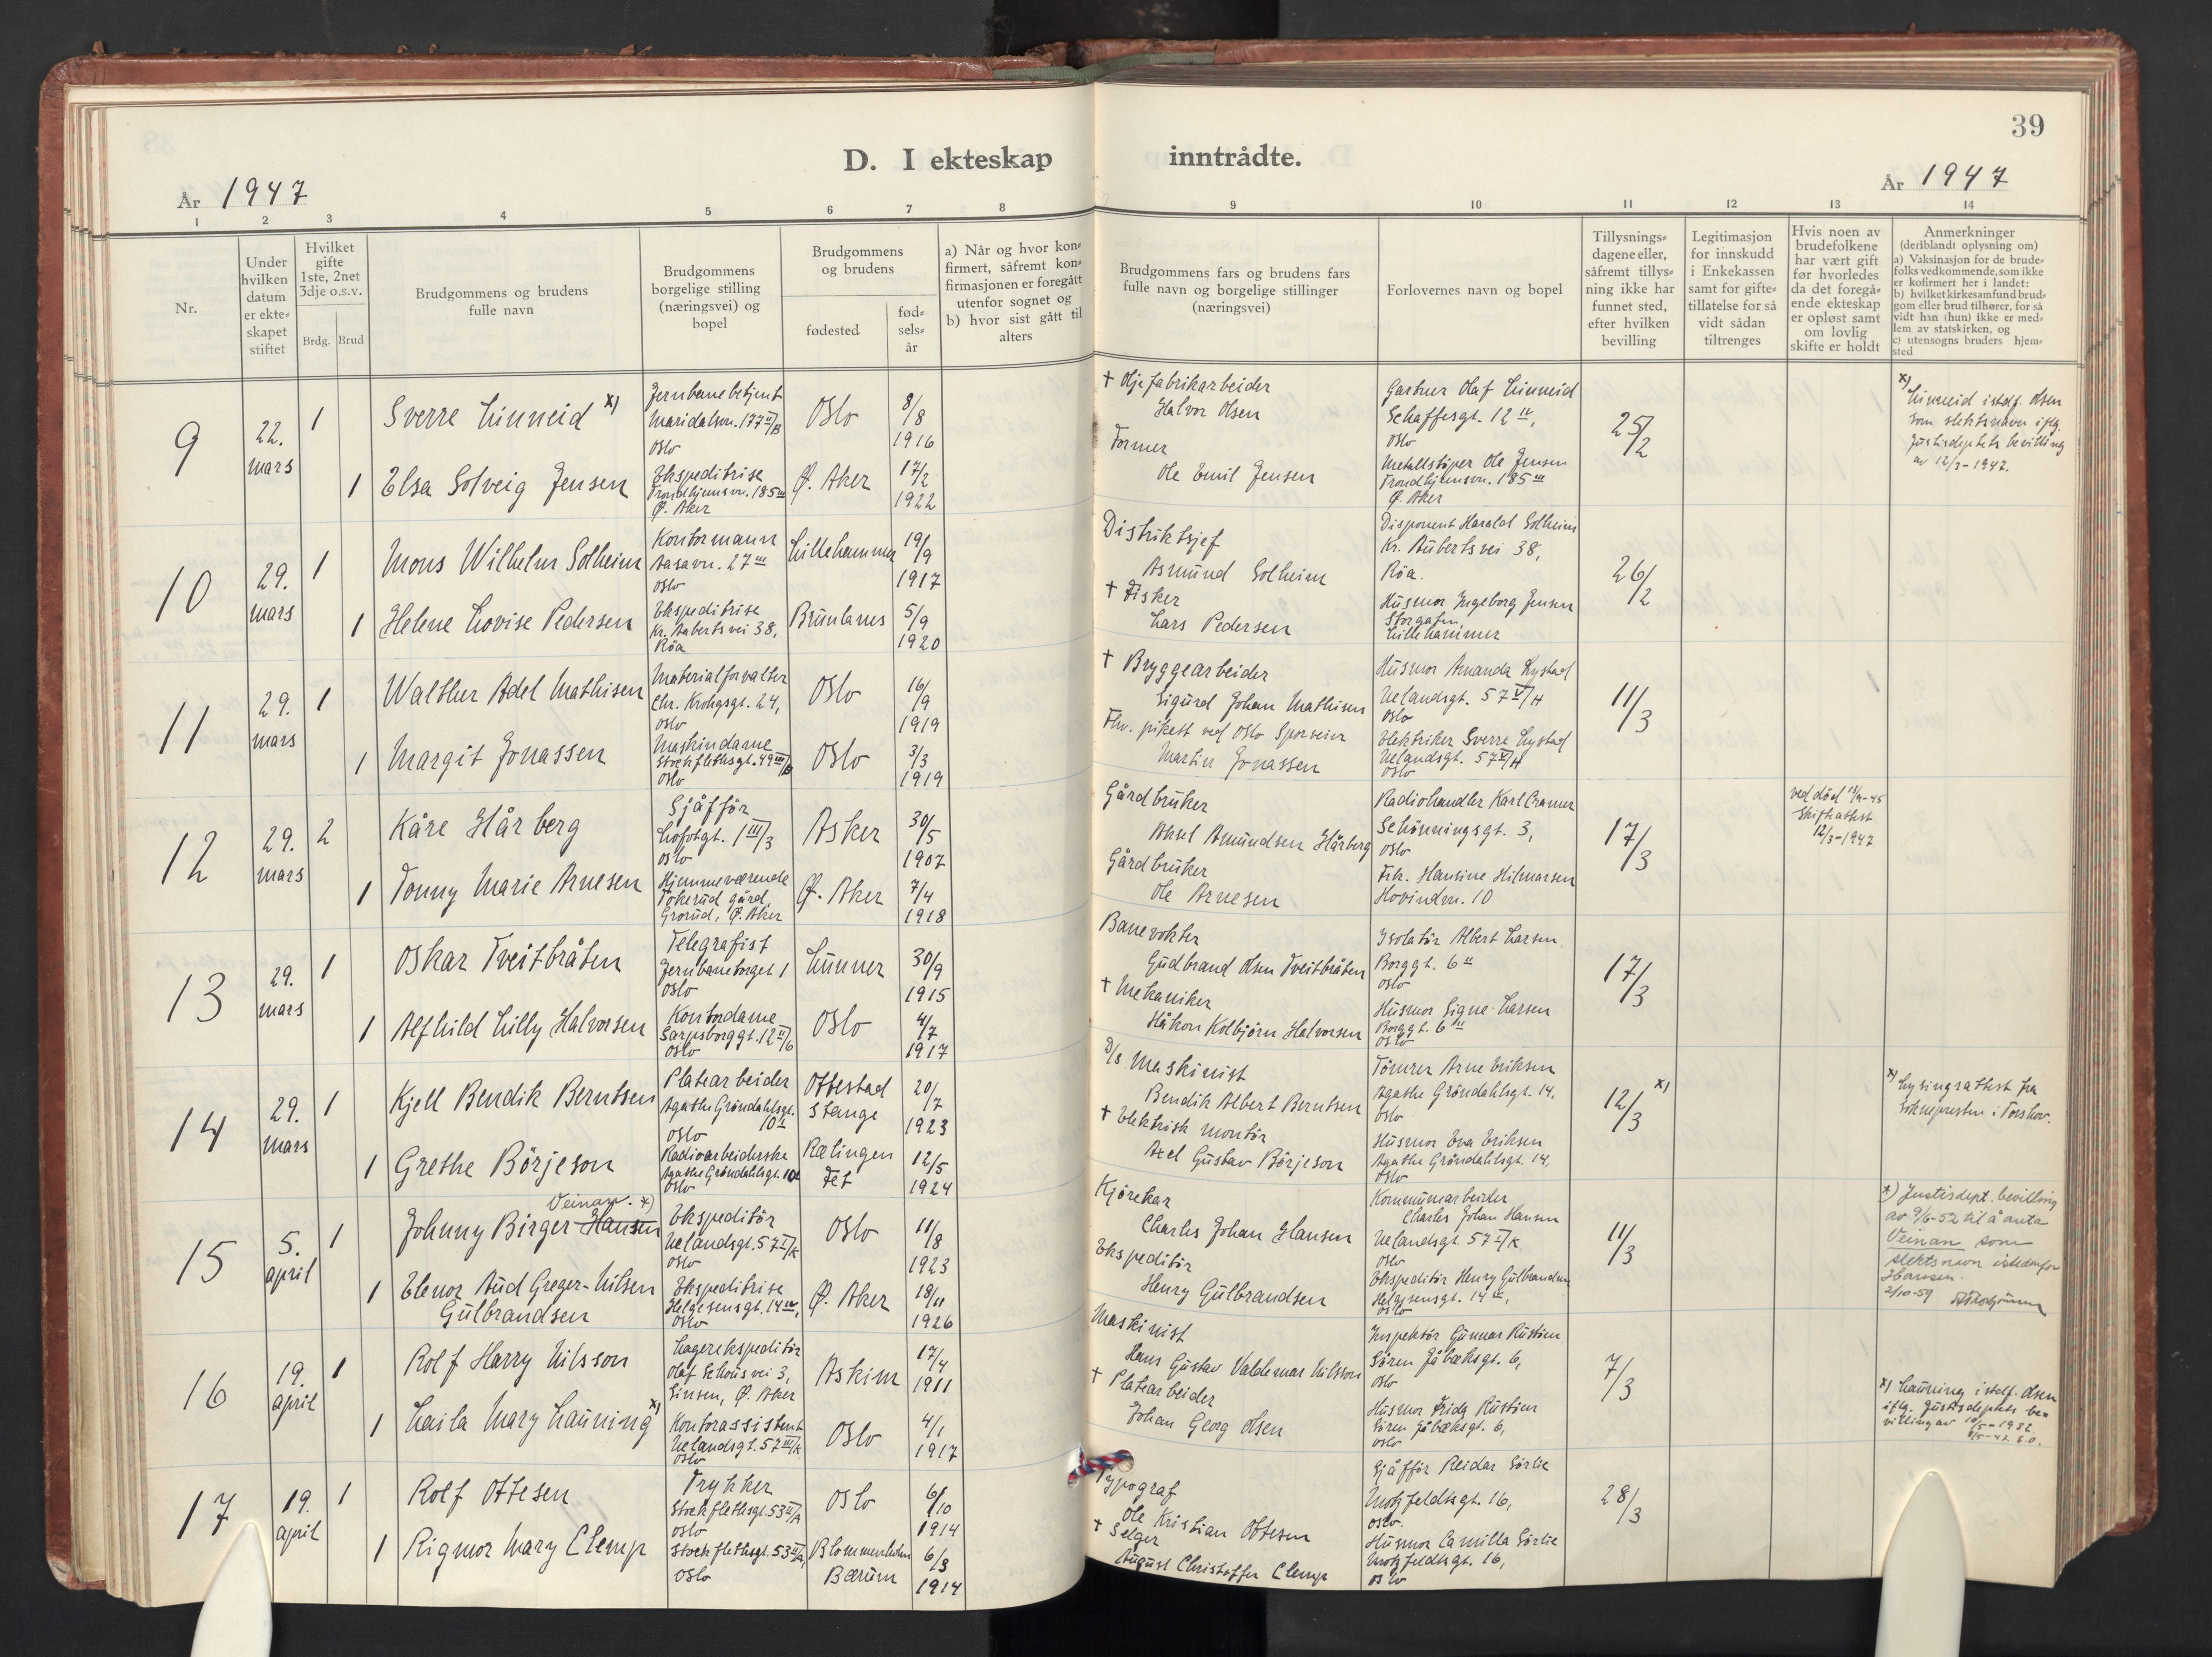 39
D. I ekteskap inntrådte.
År 1947
År 1947
1 2 3 4 5 6 7 8 9 10 11 12 13 14
Nr.
Under
hvilken
datum
er ekte-
skapet
stiftet
Hvilket
gifte
1ste, 2net
3dje o.s.v.
Brdg. Brud
Brudgommens og brudens
fulle navn
Brudgommens
borgelige stilling
(næringsvei) og
bopel
Brudgommens
og brudens
fødested
fød-
sels-
år
a) Når og hvor kon-
firmert, såfremt kon-
firmasjonen er foregått
utenfor sognet og
b) hvor sist gått til
alters
Brudgommens fars og brudens fars
fulle navn og borgelige stillinger
(næringsvei)
Forlovernes navn og bopel
Tillysnings-
dagene eller,
såfremt tillys-
ning ikke har
funnet sted,
efter hvilken
bevilling
Legitimasjon
for innskudd
i Enkekassen
samt for gifte-
tillatelse for så
vidt sådan
tiltrenges
Hvis noen av
brudefolkene
har vært gift
før hvorledes
da det foregå-
ende ekteskap
er opløst samt
om lovlig
skifte er holdt
Anmerkninger
(deriblandt oplysning om)
a) Vaksinasjon for de brude-
folks vedkommende, som ikke
er kofirmert her i landet:
b) hvilket kirkesamfund brud-
gom eller brud tilhører, for så
vidt han (hun) ikke er med-
lem av statskirken, og
c) utensogns bruders hjem-
sted
9
22.
mars
1
Sverre Linneid x)
Jernbanebetjent
Maridalsvn. 177 II/B
Oslo
Oslo
8/8
1916
† Oljefabrikarbeider
Halvor Olsen
Gartner Olaf Linneid
Schaffesgt. 12 IV,
Oslo
25/2
x) Linneid istdf. Olsen
som slektsnavn iflg.
Justisdeptets bevilling
av 12/3-1947.
1
Elsa Solveig Jensen
Ekspeditrise
Trondhjemsvn. 185 III
Ø. Aker
Ø. Aker
17/2
1922
Former
Ole Emil Jensen
Metallstøper Ole Jensen
Trondhjemsvn. 185 III
Ø. Aker
10
29.
mars
1
Mons Wilhelm Solheim
Kontormann
Aasavn. 27 III
Oslo
Lillehammer
19/9
1917
Distriktsjef
Asmund Solheim
Disponent Harald Solheim
Kr. Auberts vei 38,
Røa.
26/2
1
Helene Lovise Pedersen
Ekspeditrise
Kr. Auberts vei 38,
Røa
Brunlanes
5/9
1920
† Fisker
Lars Pedersen
Husmor Ingeborg Jensen
Storgaten,
Lillehammer
11
29.
mars
1
Walther Adel Mathisen
Materialforvalter
Chr. Krohgsgt. 24,
Oslo
Oslo
16/9
1919
† Bryggearbeider
Sigurd Johan Mathisen
Husmor Amanda Lystad
Uelandsgt. 57 V/H
Oslo
11/3
1
Margit Jonassen
Maskindame
Stockflethsgt. 49 III/B
Oslo
Oslo
3/3
1919
Fhv. pikett ved Oslo Sporveier
Martin Jonassen
Elektriker Sverre Lystad
Uelandsgt. 57 V/H
Oslo
12
29.
mars
2
Kåre Hårberg
Sjåffør
Lofotgt. 1 III/3
Oslo
Asker
30/5
1907
Gårdbruker
Aksel Amundsen Hårberg
Radiohandler Karl Cramer
Schønningsgt. 3,
Oslo
17/3
ved død
Skifteattest
12/3-1947
1
Tonny Marie Arnesen
Hjemmeværende
Tokerud gård,
Grorud, Ø. Aker
Ø. Aker
7/4
1918
Gårdbruker
Ole Arnesen
Frk. Hansine Hilmarsen
Hovindvn. 10
13
29.
mars
1
Oskar Tveitbråten
Telegrafist
Jernbanetorget 1
Oslo
Lunner
30/9
1915
Banevokter
Gudbrand Olsen Tveitbråten
Isolatør Albert Larsen.
Borggt. 6 II
Oslo
17/3
1
Alfhild Lilly Halvorsen
Kontordame
Sarpsborggt. 12 II/6
Oslo
Oslo
4/7
1917
† Mekaniker
Håkon Kolbjørn Halvorsen
Husmor Signe Larsen
Borggt. 6 II
Oslo
14
29.
mars
1
Kjell Bendik Berntsen
Platearbeider
Agathe Grøndahlsgt.
10 II
Oslo
Ottestad
Stange
20/7
1923
D/s Maskinist
Bendik Albert Berntsen
Tømrer Arne Eriksen
Agathe Grøndahlsgt. 14,
Oslo
12/3 x)
x) Lysingsattest fra
Soknepresten i Torshov.
1
Grethe Börjeson
Radioarbeiderske
Agathe Grøndahlsgt. 10
Oslo
Rælingen
Fet
12/5
1924
† Elektrisk montør
Axel Gustav Börjeson
Husmor Eva Eriksen
Agathe Grøndahlsgt. 14,
Oslo
15
5.
april
1
Veinan. x)
Johnny Birger Hansen
Ekspeditør
Uelandsgt. 57 I/K
Oslo
Oslo
11/8
1923
Kjørekar
Charles Johan Hansen
Kommunearbeider
Charles Johan Hansen
Uelandsgt. 57 I/K
Oslo
11/3
x) Justisdept. bevilling
av 9/6-52 til å anta
Veinan som
slektsnavn istedenfor
Hansen.
2/10-59
1
Elenor Aud Greger-Nilsen
Gulbrandsen
Ekspeditrise
Helgesensgt. 14 IV,
Oslo
Ø. Aker
18/11
1926
Ekspeditør
Henry Gulbrandsen
Ekspeditør Henry Gulbrandsen
Helgesensgt. 14 IV,
Oslo
16
19.
april
1
Rolf Harry Nilsson
Lagerekspeditør
Olaf Schous vei 3,
Sinsen, Ø. Aker
Askim
17/4
1911
Maskinist
Hans Gustav Valdemar Nilsson
Inspektør Gunnar Rustien
Sören Jåbæksgt. 6,
Oslo
7/3
x) Launing istdf. Olsen
iflg. Justisdeptets be-
villing av 1932
1
Laila Mary Launing x)
Kontorassistent
Uelandsgt. 57 III/K
Oslo
Oslo
4/1
1917
† Platearbeider
Johan Georg Olsen
Husmor Frida Rustien
Sören Jåbæksgt. 6,
Oslo
17
19.
april
1
Rolf Ottesen
Trykker
Stockflethsgt. 53 II/A
Oslo
Oslo
6/10
1914
Typograf
Ole Kristian Ottesen
Sjåffør Reidar Sørlie
Motzfeldtsgt. 16,
Oslo.
28/3
1
Rigmor Mary Clemp
Stockflethsgt. 53 II/A,
Oslo
Blommenholm
Bærum
6/3
1914
† Selger
August Christoffer Clemp
Husmor Camilla Sørlie
Motzfeldtsgt. 16,
Oslo